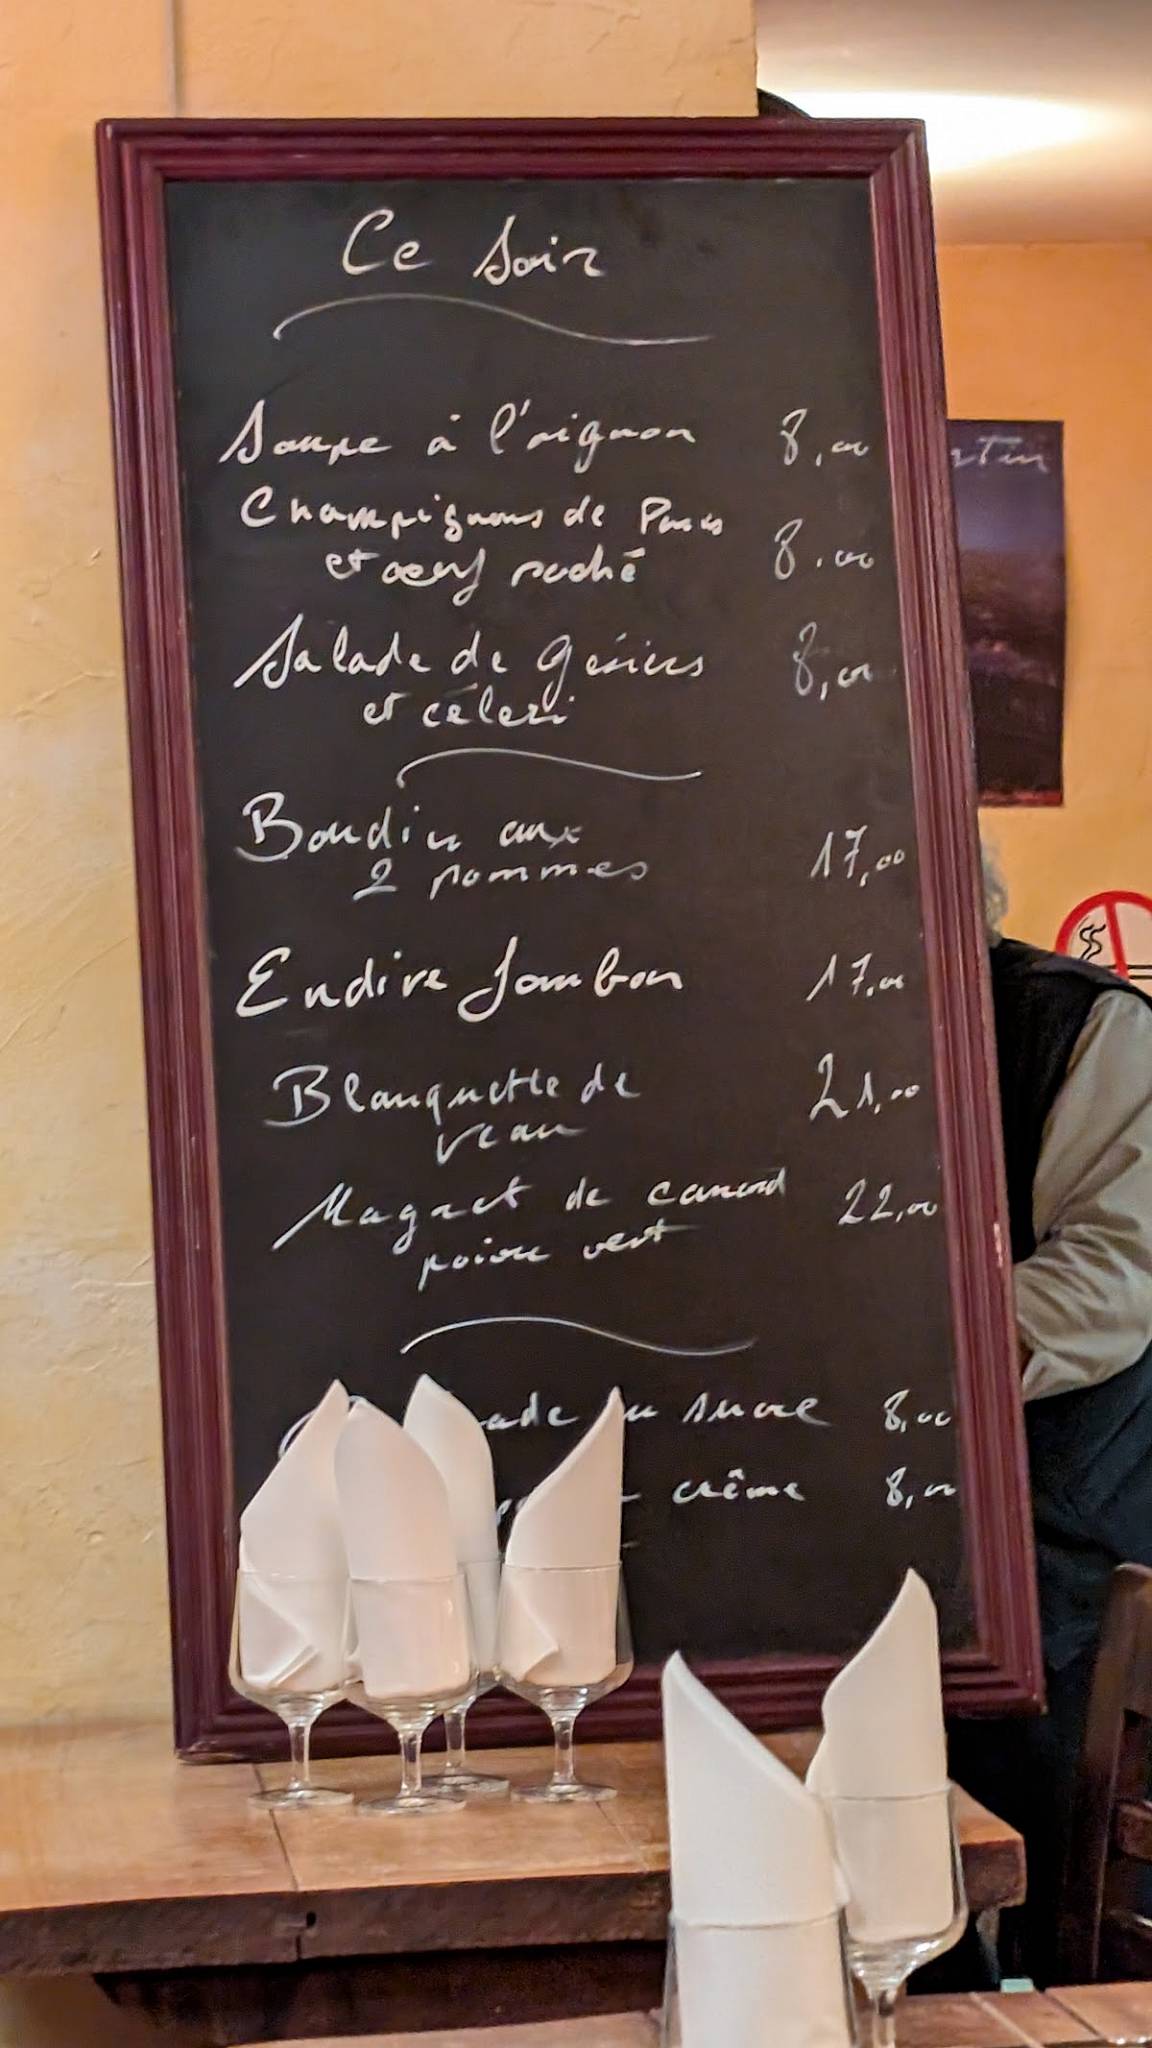 Ce Soir
Soupe à l'oignon 8,00
Champignons de Paris
et oeuf poché 8,00
Salade de Gésiers 8,00
et céleri
Boudin aux
2 pommes 17,00
Endive Jambon 17,00
Blanquette de 21,00
veau
Magret de canard 22,00
poivre vert
sucre 8,00
crême 8,00